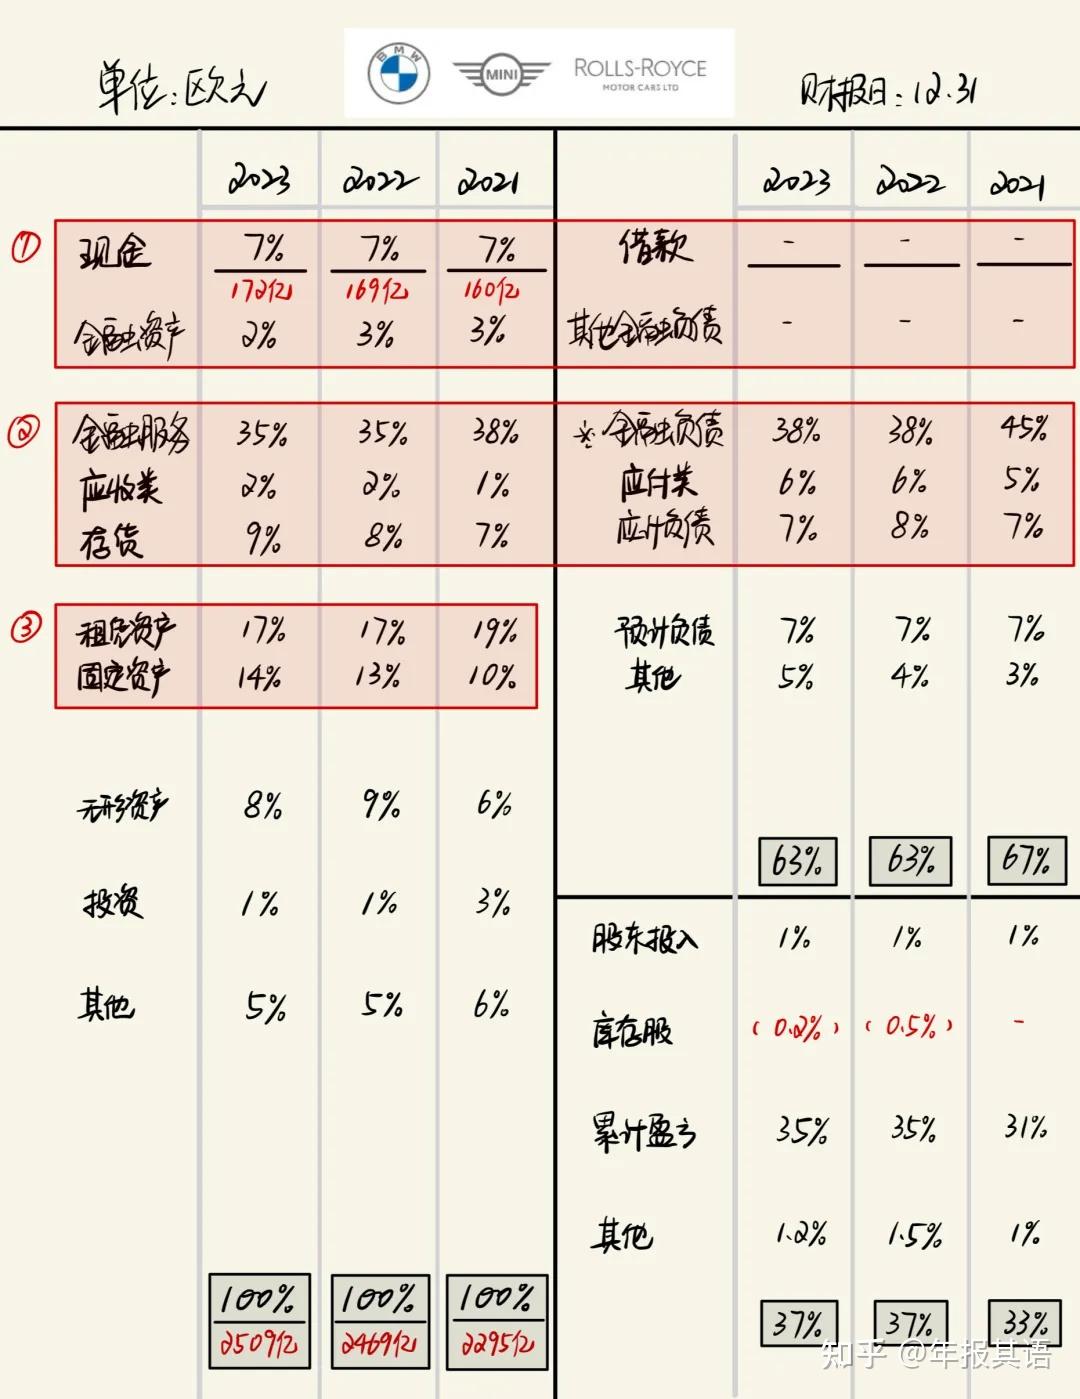 单位:欧元
BMW
MINI
ROLLS-ROYCE
MOTOR CARS LTD
财报日:12.31
2023 2022 2021 2023 2022 2021
① 现金 7% 7% 7% 借款 - - -
172亿 169亿 160亿
金融资产 2% 3% 3% 其他金融负债 - - -
② 金融服务 35% 35% 38% ※金融负债 38% 38% 45%
应收类 2% 2% 1% 应付类 6% 6% 5%
存货 9% 8% 7% 应计负债 7% 8% 7%
③ 租赁资产 17% 17% 19% 预计负债 7% 7% 7%
固定资产 14% 13% 10% 其他 5% 4% 3%
无形资产 8% 9% 6%
63% 63% 67%
投资 1% 1% 3% 股东投入 1% 1% 1%
其他 5% 5% 6% 库存股 (0.2%) (0.5%) -
累计盈亏 35% 35% 31%
其他 1.2% 1.5% 1%
100% 100% 100% 37% 37% 33%
2509亿 2469亿 2295亿
知乎 @年报其语